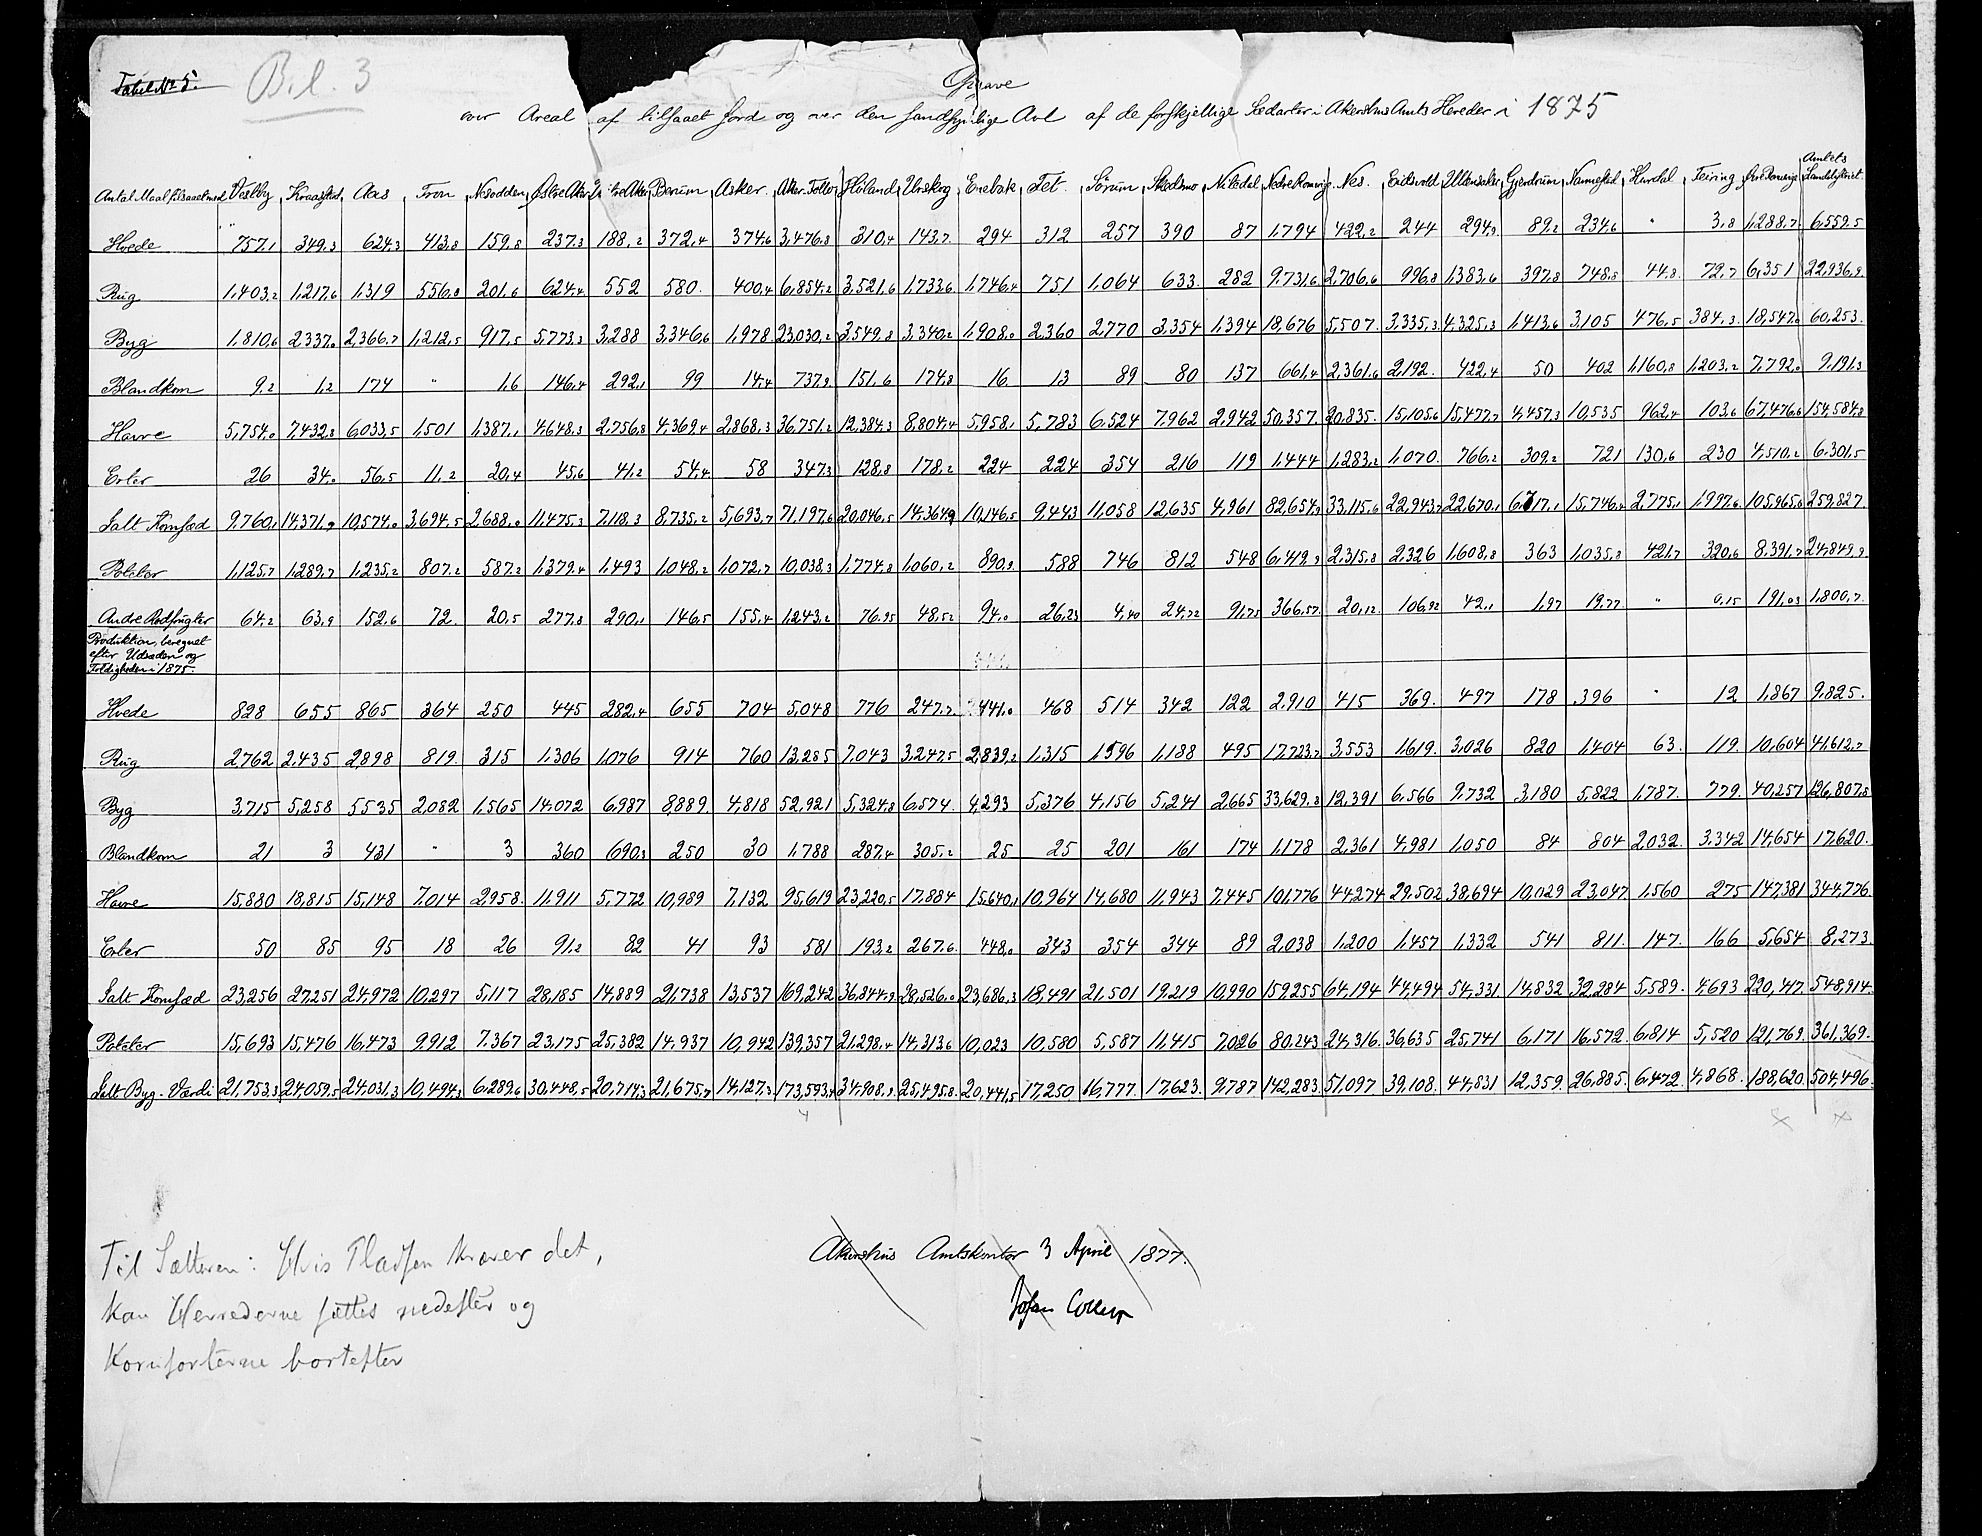 Tabel No 5.
Bil. 3
Opgave
over Areal af tilsaaet Jord og over den sandsynlige Avl af de forskjellige Sedarter i Akershus Amts Hereder i 1875
Antal Maal tilsaaet med | Vestby | Kraakstad | Aas | Fron | Nesodden | Østre Aker | Vestre Aker | Bærum | Asker | Aker Follo | Høland | Urskog | Enebak | Fet | Sørum | Skedsmo | Nitedal | Nedre Romerig | Nes. | Eidsvold | Ullensaker | Gjerdrum | Nannestad | Hurdal | Feiring | Øvre Romerige | Amtets Landdistrikt.
Hvede | 757,1 | 349,3 | 624,3 | 413,8 | 159,8 | 237,3 | 188,2 | 372,4 | 374,6 | 3,476,8 | 310,4 | 143,7 | 294 | 312 | 257 | 390 | 87 | 1,794 | 422,2 | 244 | 294,9 | 89,2 | 234,6 | " | 3,8 | 1,288,7 | 6,559,5
Rug | 1,403,2 | 1,217,6 | 1,319 | 556,8 | 201,6 | 624,4 | 552 | 580 | 400,4 | 6,854,2 | 3,521,6 | 1,733,6 | 1,746,4 | 751 | 1,064 | 633 | 282 | 9,731,6 | 2,706,6 | 996,8 | 1,383,6 | 397,8 | 748,8 | 44,8 | 72,7 | 6,351 | 22,936,9
Byg | 1,810,6 | 2337,0 | 2,366,7 | 1,212,5 | 917,5 | 5,773,3 | 3,288 | 3,346,6 | 1,978 | 23,030,2 | 3,549,8 | 3,340,2 | 1,908,0 | 2,360 | 2,770 | 3,354 | 1,394 | 18,676 | 5,507 | 3,335,3 | 4,325,3 | 1,413,6 | 3,105 | 476,5 | 384,3 | 18,547,0 | 60,253
Blandkorn | 9,2 | 1,2 | 174 | " | 1,6 | 146,4 | 292,1 | 99 | 14,4 | 737,9 | 151,6 | 174,8 | 16 | 13 | 89 | 80 | 137 | 661,4 | 2,361,6 | 2,192 | 422,4 | 50 | 402 | 1,160,8 | 1,203,2 | 7,792,0 | 9,191,3
Havre | 5,754,0 | 7,432,8 | 6,033,5 | 1,501 | 1,387,1 | 4,648,3 | 2,756,8 | 4,369,4 | 2,868,3 | 36,751,2 | 12,384,3 | 8,804,4 | 5,958,1 | 5,783 | 6,524 | 7,962 | 2,942 | 50,357 | 20,835 | 15,105,6 | 15,477,7 | 4,457,3 | 10,535 | 962,4 | 103,6 | 67,476,6 | 154,584,8
Erter | 26 | 34,0 | 56,5 | 11,2 | 20,4 | 45,6 | 41,2 | 54,4 | 58 | 347,3 | 128,8 | 178,2 | 224 | 224 | 354 | 216 | 119 | 1,444 | 1,283,2 | 1,070 | 766,2 | 309,2 | 721 | 130,6 | 230 | 4,510,2 | 6,301,5
Talt Kornsæd | 9,760,1 | 14,371,9 | 10,574,0 | 3,694,5 | 2,688,0 | 11,475,3 | 7,118,3 | 8,735,2 | 5,693,7 | 71,197,6 | 20,046,5 | 14,364,9 | 10,146,5 | 9,443 | 11,058 | 12,635 | 4,961 | 82,654,9 | 33,115,6 | 22,943,7 | 22,670,1 | 6,717,1 | 15,746,4 | 2,775,1 | 1,997,6 | 105,965,6 | 259,827
Poteter | 1,125,7 | 1,289,7 | 1,235,2 | 807,2 | 587,2 | 1,379,4 | 1,493 | 1,048,2 | 1,072,7 | 10,038,3 | 1,774,8 | 1,060,2 | 890,9 | 588 | 746 | 812 | 548 | 6,419,9 | 2,315,8 | 2,326 | 1,608,8 | 363 | 1,035,8 | 421,7 | 320,6 | 8,391,7 | 24,849,9
Andre Rodfrugter | 64,2 | 63,9 | 152,6 | 72 | 20,5 | 277,8 | 290,1 | 146,5 | 155,4 | 1,243,2 | 76,95 | 48,52 | 94,0 | 26,23 | 4,40 | 24,72 | 91,75 | 366,57 | 20,12 | 106,92 | 42,1 | 1,97 | 19,77 | " | 0,15 | 191,03 | 1,800,7
Produktion, beregnet
efter Udsæden og
Foldigheden i 1875.
Hvede | 828 | 655 | 865 | 364 | 250 | 445 | 282,4 | 655 | 704 | 5,048 | 776 | 247,7 | 441,0 | 468 | 514 | 342 | 122 | 2,910 | 415 | 369 | 497 | 178 | 396 | " | 12 | 1,867 | 9,825
Rug | 2762 | 2,435 | 2898 | 819 | 315 | 1,306 | 1,076 | 914 | 760 | 13,285 | 7,043 | 3,247,5 | 2,839,2 | 1,315 | 1,596 | 1,188 | 495 | 17,723,7 | 3,553 | 1,619 | 3,026 | 820 | 1,404 | 63 | 119 | 10,604 | 41,612,7
Byg | 3,715 | 5,258 | 5535 | 2,082 | 1,565 | 14,072 | 6,987 | 8,889 | 4,818 | 52,921 | 5,324,8 | 6,574 | 4,293 | 5,376 | 4,156 | 5,241 | 2,665 | 33,629,8 | 12,391 | 6,566 | 9,732 | 3,180 | 5,822 | 1,787 | 779 | 40,257 | 126,807,8
Blandkorn | 21 | 3 | 431 | " | 3 | 360 | 690,3 | 250 | 30 | 1,788 | 287,4 | 305,2 | 25 | 25 | 201 | 161 | 174 | 1,178 | 2,361 | 4,981 | 1,050 | 84 | 804 | 2,032 | 3,342 | 14,654 | 17,620
Havre | 15,880 | 18,815 | 15,148 | 7,014 | 2,958 | 11,911 | 5,772 | 10,989 | 7,132 | 95,619 | 23,220,5 | 17,884 | 15,640,1 | 10,964 | 14,680 | 11,943 | 7,445 | 101,776 | 44,274 | 29,502 | 38,694 | 10,029 | 23,047 | 1,560 | 275 | 147,381 | 344,776
Erter | 50 | 85 | 95 | 18 | 26 | 91,2 | 82 | 41 | 93 | 581 | 193,2 | 267,6 | 448,0 | 343 | 354 | 344 | 89 | 2,038 | 1,200 | 1,457 | 1,332 | 541 | 811 | 147 | 166 | 5,654 | 8,273
Talt Kornsæd | 23,256 | 27,251 | 24,972 | 10,297 | 5,117 | 28,185 | 14,889 | 21,738 | 13,537 | 169,242 | 36,844,9 | 28,526,0 | 23,686,3 | 18,491 | 21,501 | 19,219 | 10,990 | 159,255 | 64,194 | 44,494 | 54,331 | 14,832 | 32,284 | 5,589 | 4,693 | 220,417 | 548,914
Poteter | 15,693 | 15,476 | 16,473 | 9,912 | 7,367 | 23,175 | 25,382 | 14,937 | 10,942 | 139,357 | 21,298,4 | 14,313,6 | 10,023 | 10,580 | 5,587 | 11,415 | 7,026 | 80,243 | 24,316 | 36,635 | 25,741 | 6,171 | 16,572 | 6,814 | 5,520 | 121,769 | 361,369
Talt Byg-Værdi | 21,753,3 | 24,059,5 | 24,031,3 | 10,494,3 | 6,289,6 | 30,448,5 | 20,714,3 | 21,675,7 | 14,127,3 | 173,593,4 | 34,908,9 | 25,495,8 | 20,441,5 | 17,250 | 16,777 | 17,623 | 9,787 | 142,283 | 51,097 | 39,108 | 44,831 | 12,359 | 26,885 | 6,472 | 4,868 | 188,620 | 504,496
Akershus Amtskontor 3 April 1877.
Johan Collett
Til Sætteren: Hvis Pladsen kræver det,
kan Herrederne sættes nedefter og
Kornsorterne bortefter